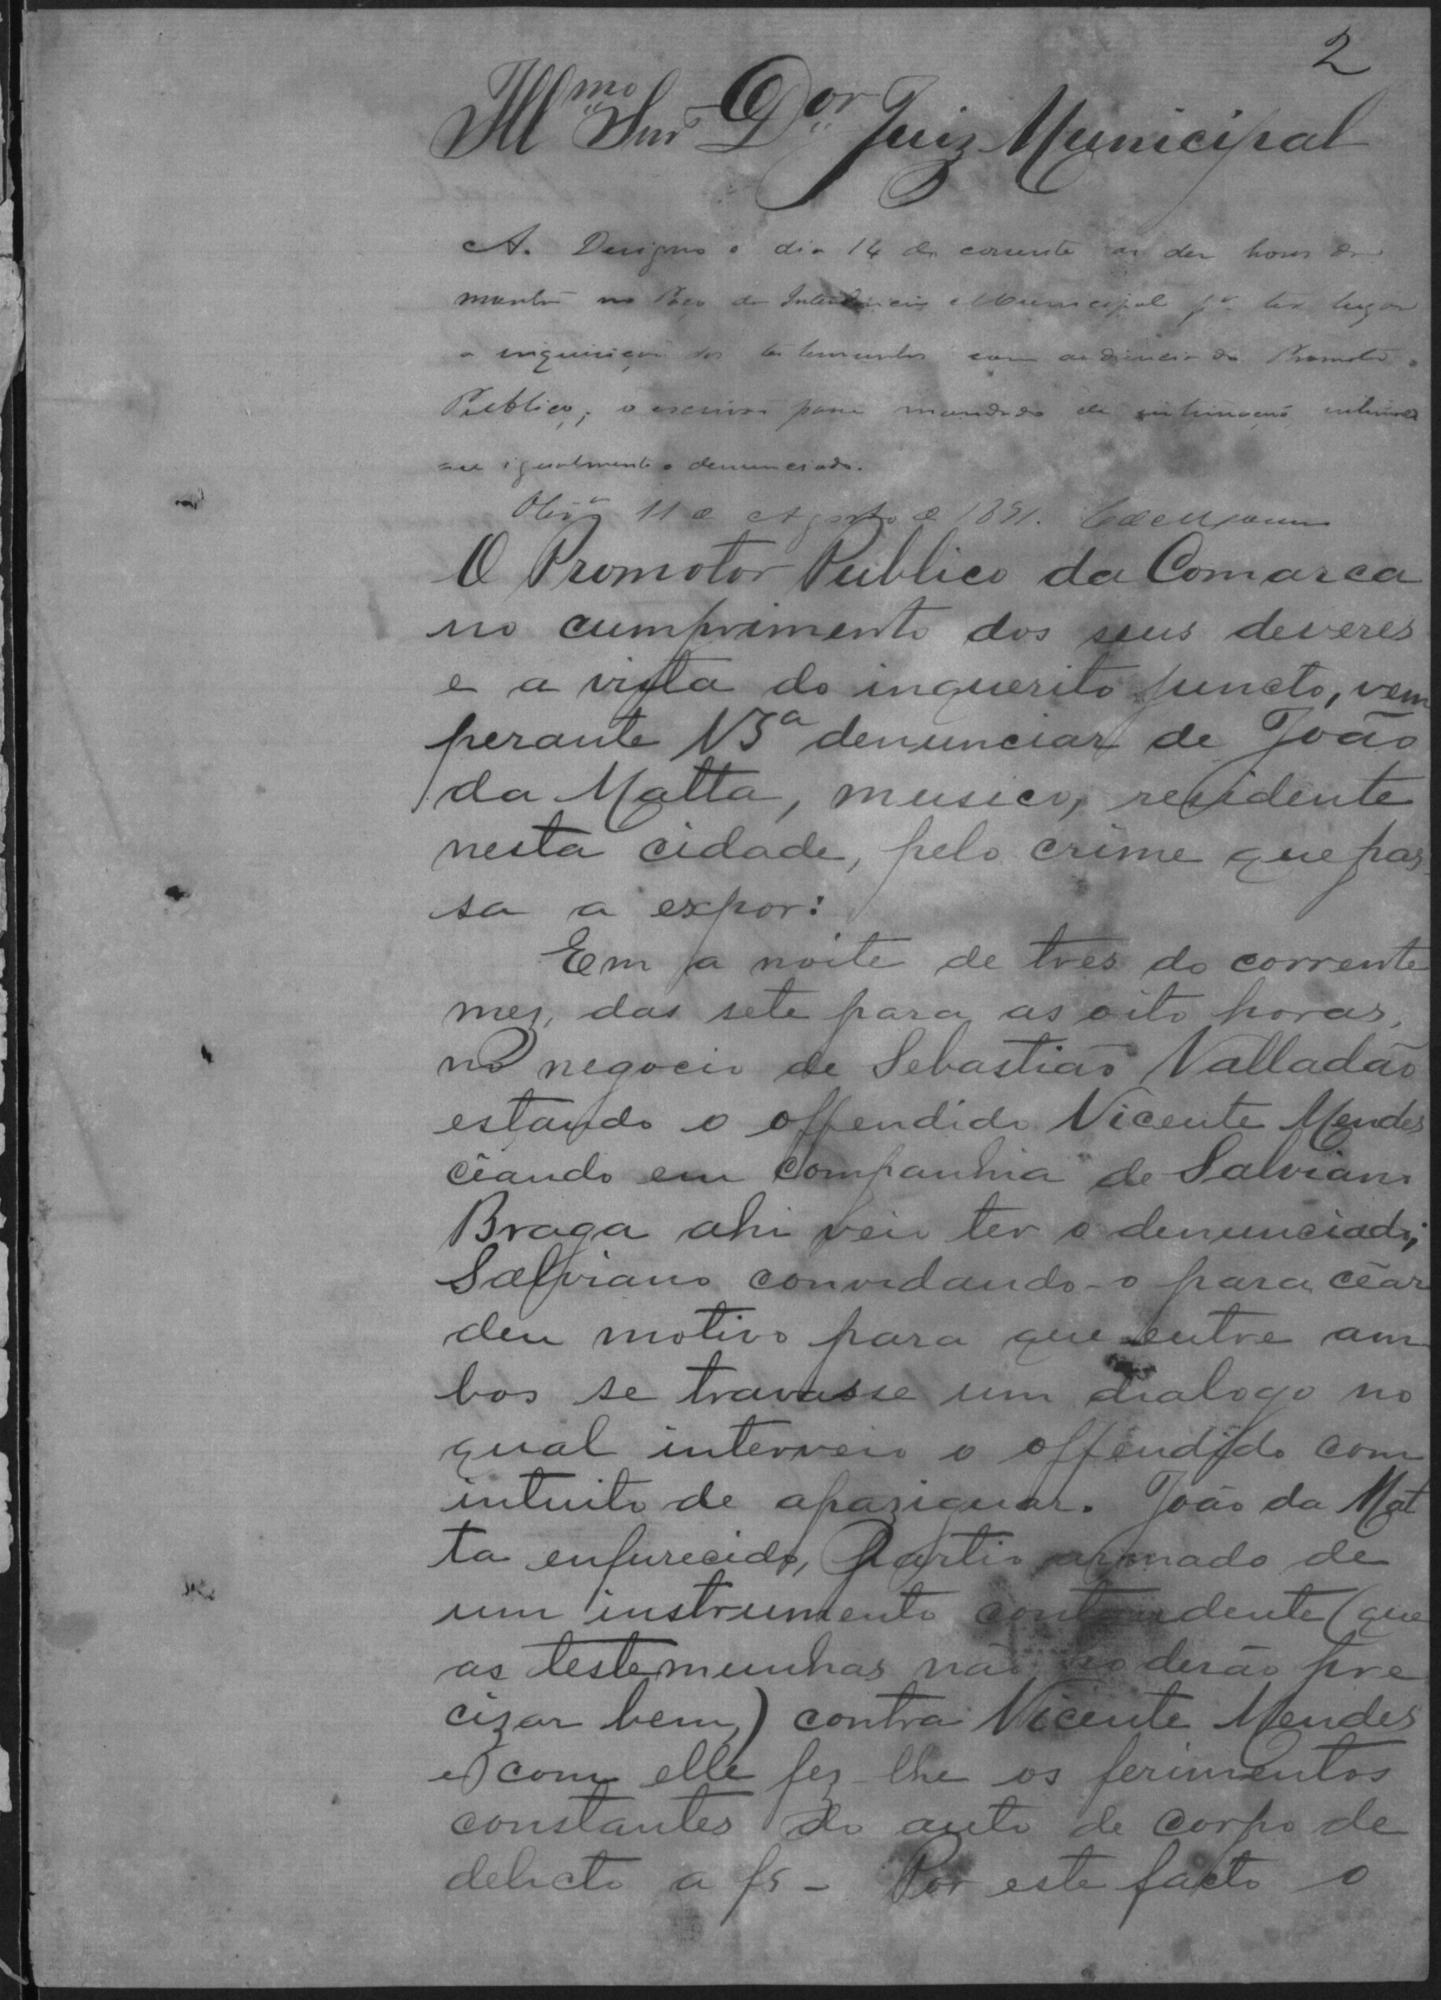 2
Illmo Snr Dor Juiz Municipal
A. Designo o dia 14 do corrente as dez horas da
manhã no Paço da Intendencia Municipal pa ter lugar
a inquirição das testemunhas com audiencia do Promotor
Publico; o escrivão passe mandado de intimação
igualmente o denunciado.
11 de Agosto de 1891.
O Promotor Publico da Comarca
no cumprimento dos seus deveres
e a vista do inquerito juncto, vem
perante VSa denunciar de João
da Matta, musico, residente
nesta cidade, pelo crime que pas
sa a expor:
Em a noite de tres do corrente
mez, das sete para as oito horas,
no negocio de Sebastião Valladão
estando o offendido Vicente Mendes
ceando em companhia de Salviano
Braga ahi veio ter o denunciado;
Salviano convidando-o para cear
deu motivo para que entre am
bos se travasse um dialogo no
qual interveio o offendido com
intuito de apaziguar. João da Mat
ta enfurecido, partio armado de
um instrumento contundente (que
as testemunhas não poderão pre
cizar bem) contra Vicente Mendes
e com elle fez-lhe os ferimentos
constantes do auto de corpo de
delicto a fs - Por este facto o